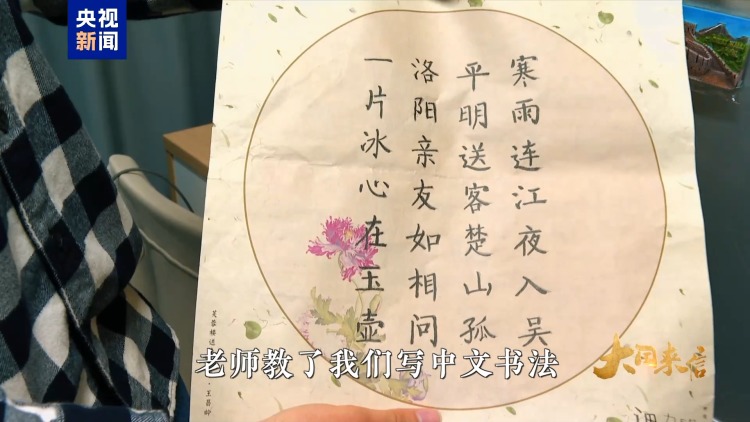 央视
新闻
寒雨连江夜入吴
平明送客楚山孤
洛阳亲友如相问
一片冰心在玉壶
芙蓉楼送
·王昌龄
老师教了我们写中文书法
大同来信